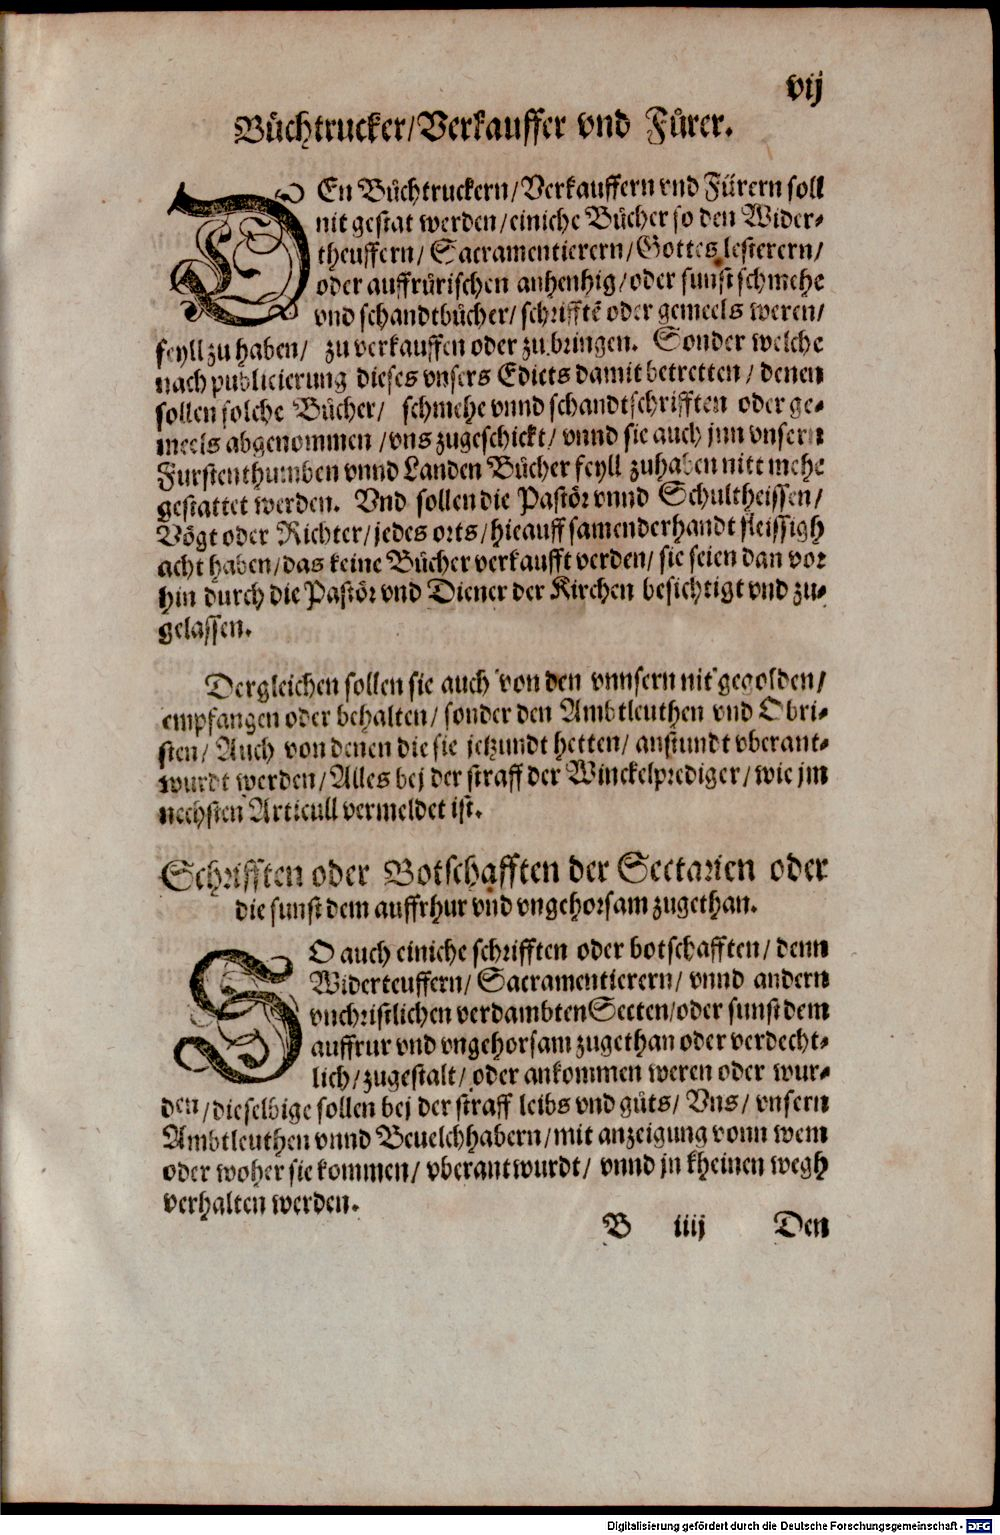 vij
Bůchtrucker/Verkauffer vnd Fůrer.
DEn Bůchtruckern/Verkauffern vnd Fürern soll
nit gestat werden/einiche Bücher so den Wider-
theuffern/ Sacramentierern/Gottes lesterern/
oder auffrůrischen anhenhig/oder sunst schmehe
vnd schandtbücher/ schrifftẽ oder gemeels weren/
feyll zu haben/ zu verkauffen oder zu bringen. Sonder welche
nach publicierung dieses vnsers Edicts damit betretten/ denen
sollen solche Bücher/ schmehe vnnd schandtschrifften oder ge-
meels abgenommen/vns zugeschickt/ vnnd sie auch jnn vnsern
Furstenthumben vnnd Landen Bücher feyll zuhaben nitt mehe
gestattet werden. Vnd sollen die Pastör vnnd Schultheissen/
Vögt oder Richter/jedes orts/hieauff samenderhandt fleissigh
acht haben/das keine Bůcher verkaufft verden/ sie seien dan vor
hin durch die Pastör vnd Diener der Kirchen besichtigt vnd zu-
gelassen.
Dergleichen sollen sie auch von den vnnsern nit gegolden/
empfangen oder behalten/ sonder den Ambtleuthen vnd Obri-
sten/ Auch von denen die sie jetzundt hetten/ anstundt vberant-
wurdt werden/Alles bej der straff der Winckelprediger/wie jm
nechsten Articull vermeldet ist.
Schrifften oder Botschafften der Sectarien oder
die sunst dem auffrhur vnd vngehorsam zugethan.
SO auch einiche schrifften oder botschafften/ denn
Widerteuffern/ Sacramentierern/ vnnd andern
vnchristlichen verdambten Secten/oder sunst dem
auffrur vnd vngehorsam zugethan oder verdecht-
lich/zugestalt/ oder ankommen weren oder wur-
den/dieselbige sollen bej der straff leibs vnd gůts/ Vns/ vnsern
Ambtleuthen vnnd Beuelchhabern/mit anzeigung vonn wem
oder woher sie kommen/ vberantwurdt/ vnnd jn kheinen wegh
verhalten werden.
B iiij Den
Digitalisierung gefördert durch die Deutsche Forschungsgemeinschaft - DFG